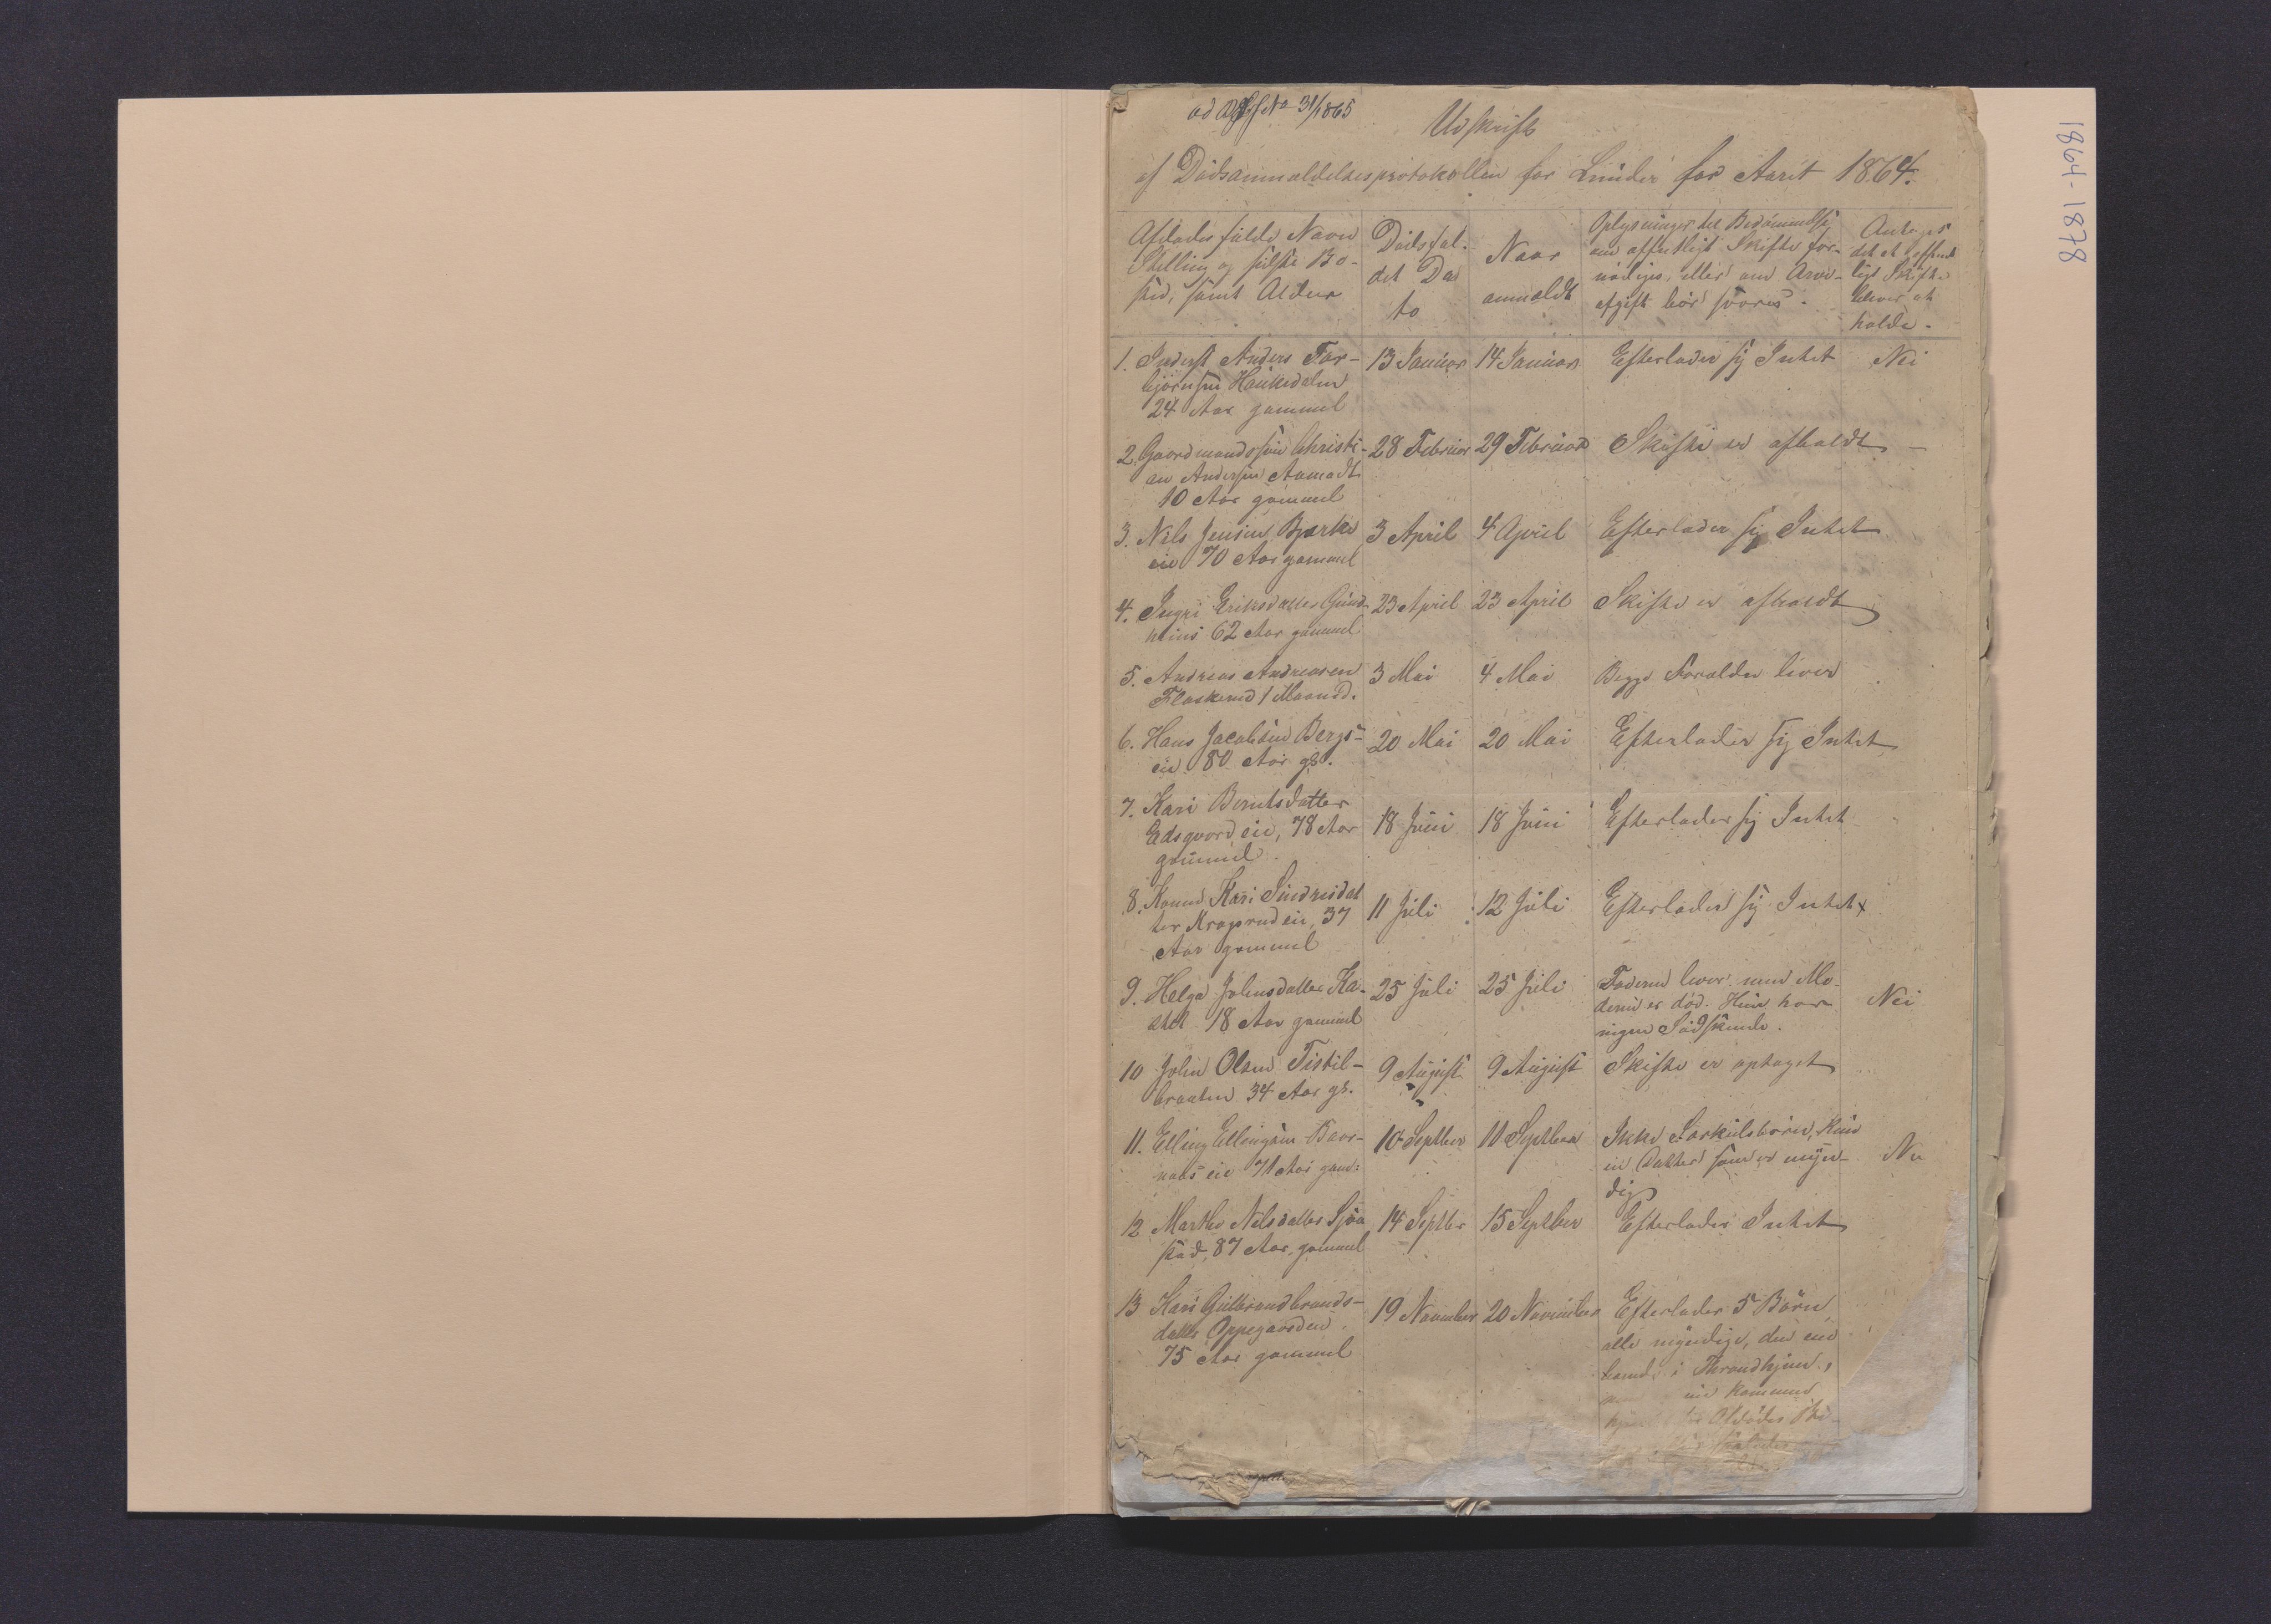 1864-1878
No 31/1865
Udskrift
af Dödsanmeldelsesprotokollen for Lunder for Aaret 1864.
Afdødes fulde Navn
Stilling og sidste Bo-
sted, samt Alder
Dødsfal-
det Da
to
Naar
anmeldt
Oplysninger til Bedømmelse
om offentligt Skifte for-
nødiges, eller om Arve-
afgift bør svares.
Antages
det at offent
ligt Skifte
bliver at
holde.
1. Inderst Anders Tor-
björnsen Haukedalen
24 Aar gammel
13 Januar
14 Januar
Efterlader sig Intet
Nei
2. Gaardmandssön Christi-
an Andersen Aamodt
10 Aar gammel
28 Februar
29 Februar
Skifte er afholdt
-
3. Nils Jensen Bjerke
eie 70 Aar gammel
3 April
4 April
Efterlader sig Intet
4. Ingri Eriksdatter Gund-
62 Aar gammel
23 April
23 April
Skifte er afholdt
5. Andreas Andreasen
Flaskerud 1 Maaned.
3 Mai
4 Mai
Begge Forældre lever
6. Hans Jacobsen Bergs-
eie 80 Aar gl.
20 Mai
20 Mai
Efterlader sig Intet
7. Kari Berntsdatter
Eidsgaard eie, 78 Aar
gammel
18 Juni
18 Juni
Efterlader sig Intet
8. Konen Kari Sindresdat
ter Kragsrud eie, 37
Aar gammel
11 Juli
12 Juli
Efterlader sig Intet
9. Helga Johnsdatter
18 Aar gammel
25 Juli
25 Juli
Faderen lever men Mo-
deren er död. Hun har
ingen Södskende.
Nei
10 John Olsen Tistil-
braaten 34 Aar gl.
9 August
9 August
Skifte er optaget
11. Elling Ellingsen Baar-
naas eie 71 Aar gam:
10 Septber
11 Septber
Ikke Særkulsbörn, kun
en Datter som er myn-
dig
12 Marthe Nilsdatter Sjaa
stad, 87 Aar gammel
14 Septbr
15 Septber
Efterlader Intet
13 Kari Gulbrandbrands-
datter Oppegaarden
75 Aar gammel
19 November
20 November
Efterlader 5 Börn
alle myndige, den ene
i Throndhjem,